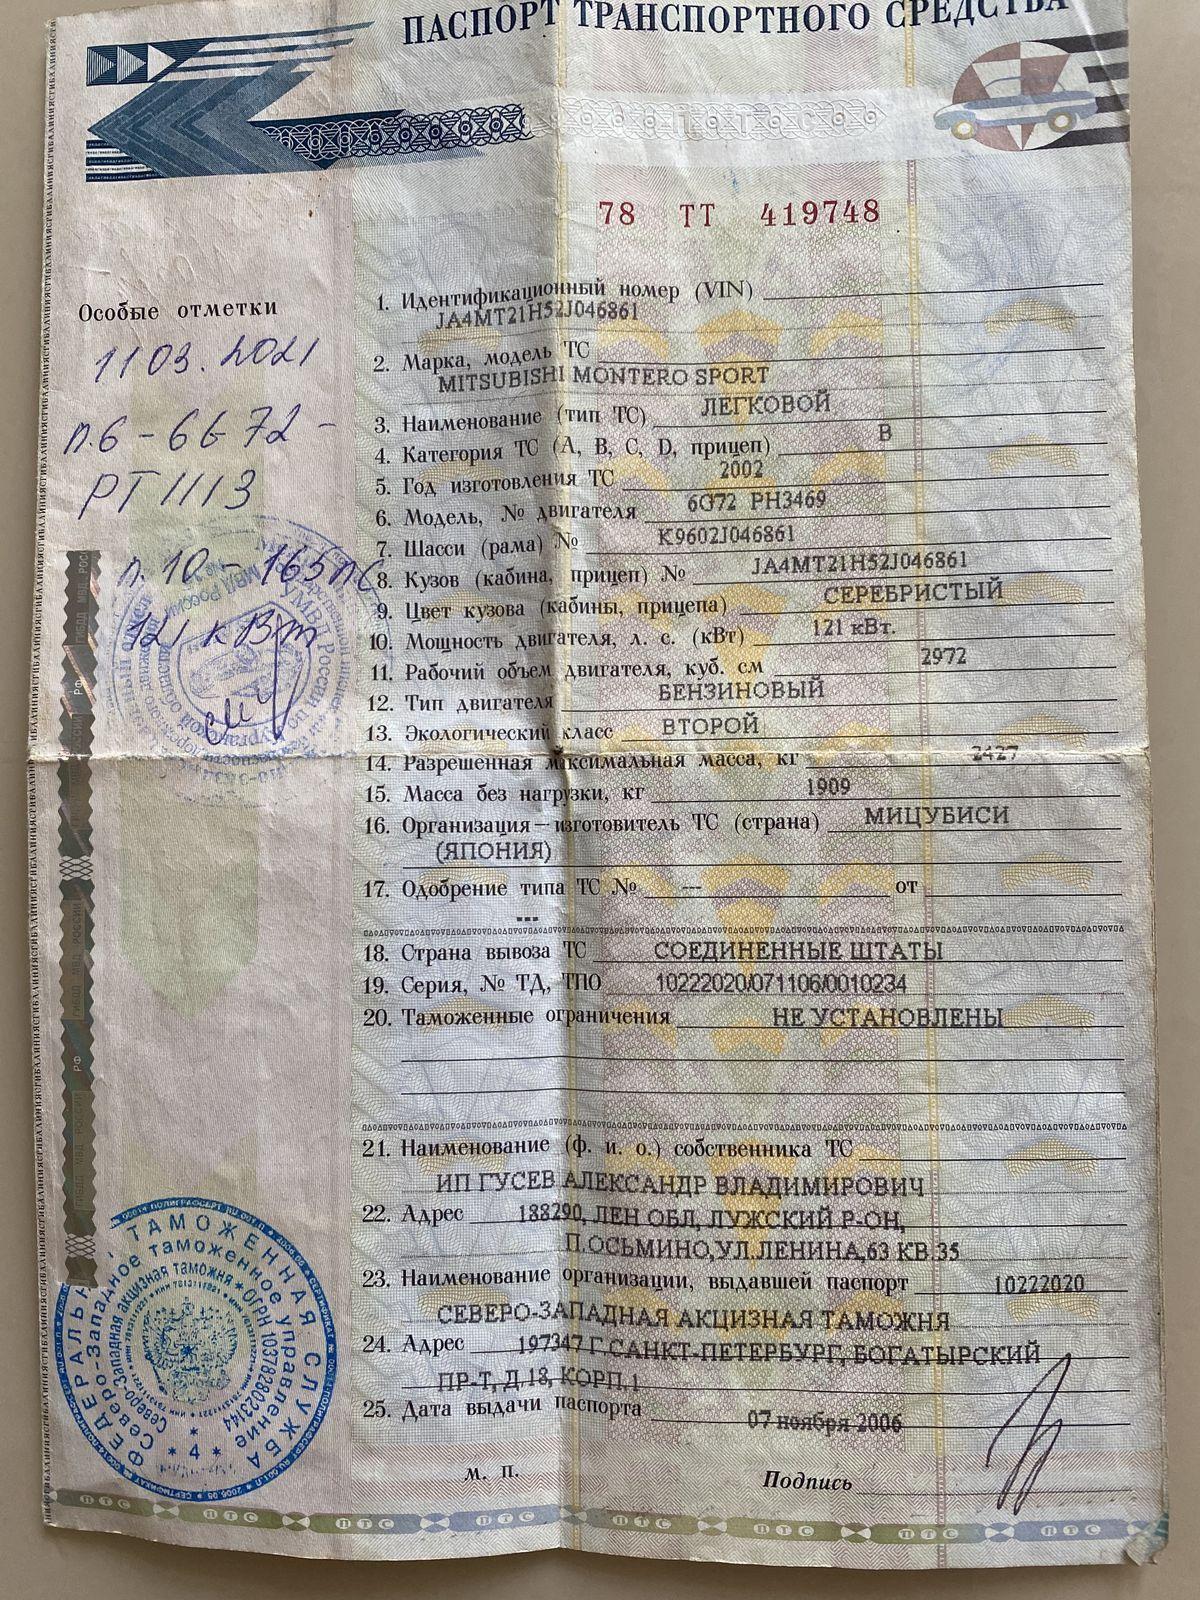 ПАСПОРТ ТРАНСПОРТНОГО СРЕДСТВА
ПТС
78 ТТ 419748
Особые отметки
11 03. 2021
п.6 - 6G72 -
РТ1113
п. 10 - 165 лс
121 кВт
1. Идентификационный номер (VIN)
JA4MT21H52J046861
2. Марка, модель ТС
MITSUBISHI MONTERO SPORT
3. Наименование (тип ТС) ЛЕГКОВОЙ
4. Категория ТС (A, B, C, D, прицеп) B
5. Год изготовления ТС 2002
6. Модель, № двигателя 6G72 PH3469
7. Шасси (рама) № K9602J046861
8. Кузов (кабина, прицеп) № JA4MT21H52J046861
9. Цвет кузова (кабины, прицепа) СЕРЕБРИСТЫЙ
10. Мощность двигателя, л. с. (кВт) 121 кВт.
11. Рабочий объем двигателя, куб. см 2972
12. Тип двигателя БЕНЗИНОВЫЙ
13. Экологический класс ВТОРОЙ
14. Разрешенная максимальная масса, кг 2427
15. Масса без нагрузки, кг 1909
16. Организация–изготовитель ТС (страна) МИЦУБИСИ
(ЯПОНИЯ)
17. Одобрение типа ТС № --- от
---
18. Страна вывоза ТС СОЕДИНЕННЫЕ ШТАТЫ
19. Серия, № ТД, ТПО 10222020/071106/0010234
20. Таможенные ограничения НЕ УСТАНОВЛЕНЫ
21. Наименование (ф. и. о.) собственника ТС
ИП ГУСЕВ АЛЕКСАНДР ВЛАДИМИРОВИЧ
22. Адрес 188290, ЛЕН ОБЛ, ЛУЖСКИЙ Р-ОН,
П.ОСЬМИНО,УЛ.ЛЕНИНА,63 КВ.35
23. Наименование организации, выдавшей паспорт 10222020
СЕВЕРО-ЗАПАДНАЯ АКЦИЗНАЯ ТАМОЖНЯ
24. Адрес 197347 Г.САНКТ-ПЕТЕРБУРГ, БОГАТЫРСКИЙ
ПР-Т, Д.18, КОРП.1
25. Дата выдачи паспорта 07 ноября 2006
м. п.
Подпись
ФЕДЕРАЛЬНАЯ ТАМОЖЕННАЯ СЛУЖБА
Северо-западное таможенное управление
Северо-Западная акцизная таможня * ОГРН 1037828023144
* 4 *
ПТС ПТС ПТС ПТС ПТС ПТС ПТС ПТС